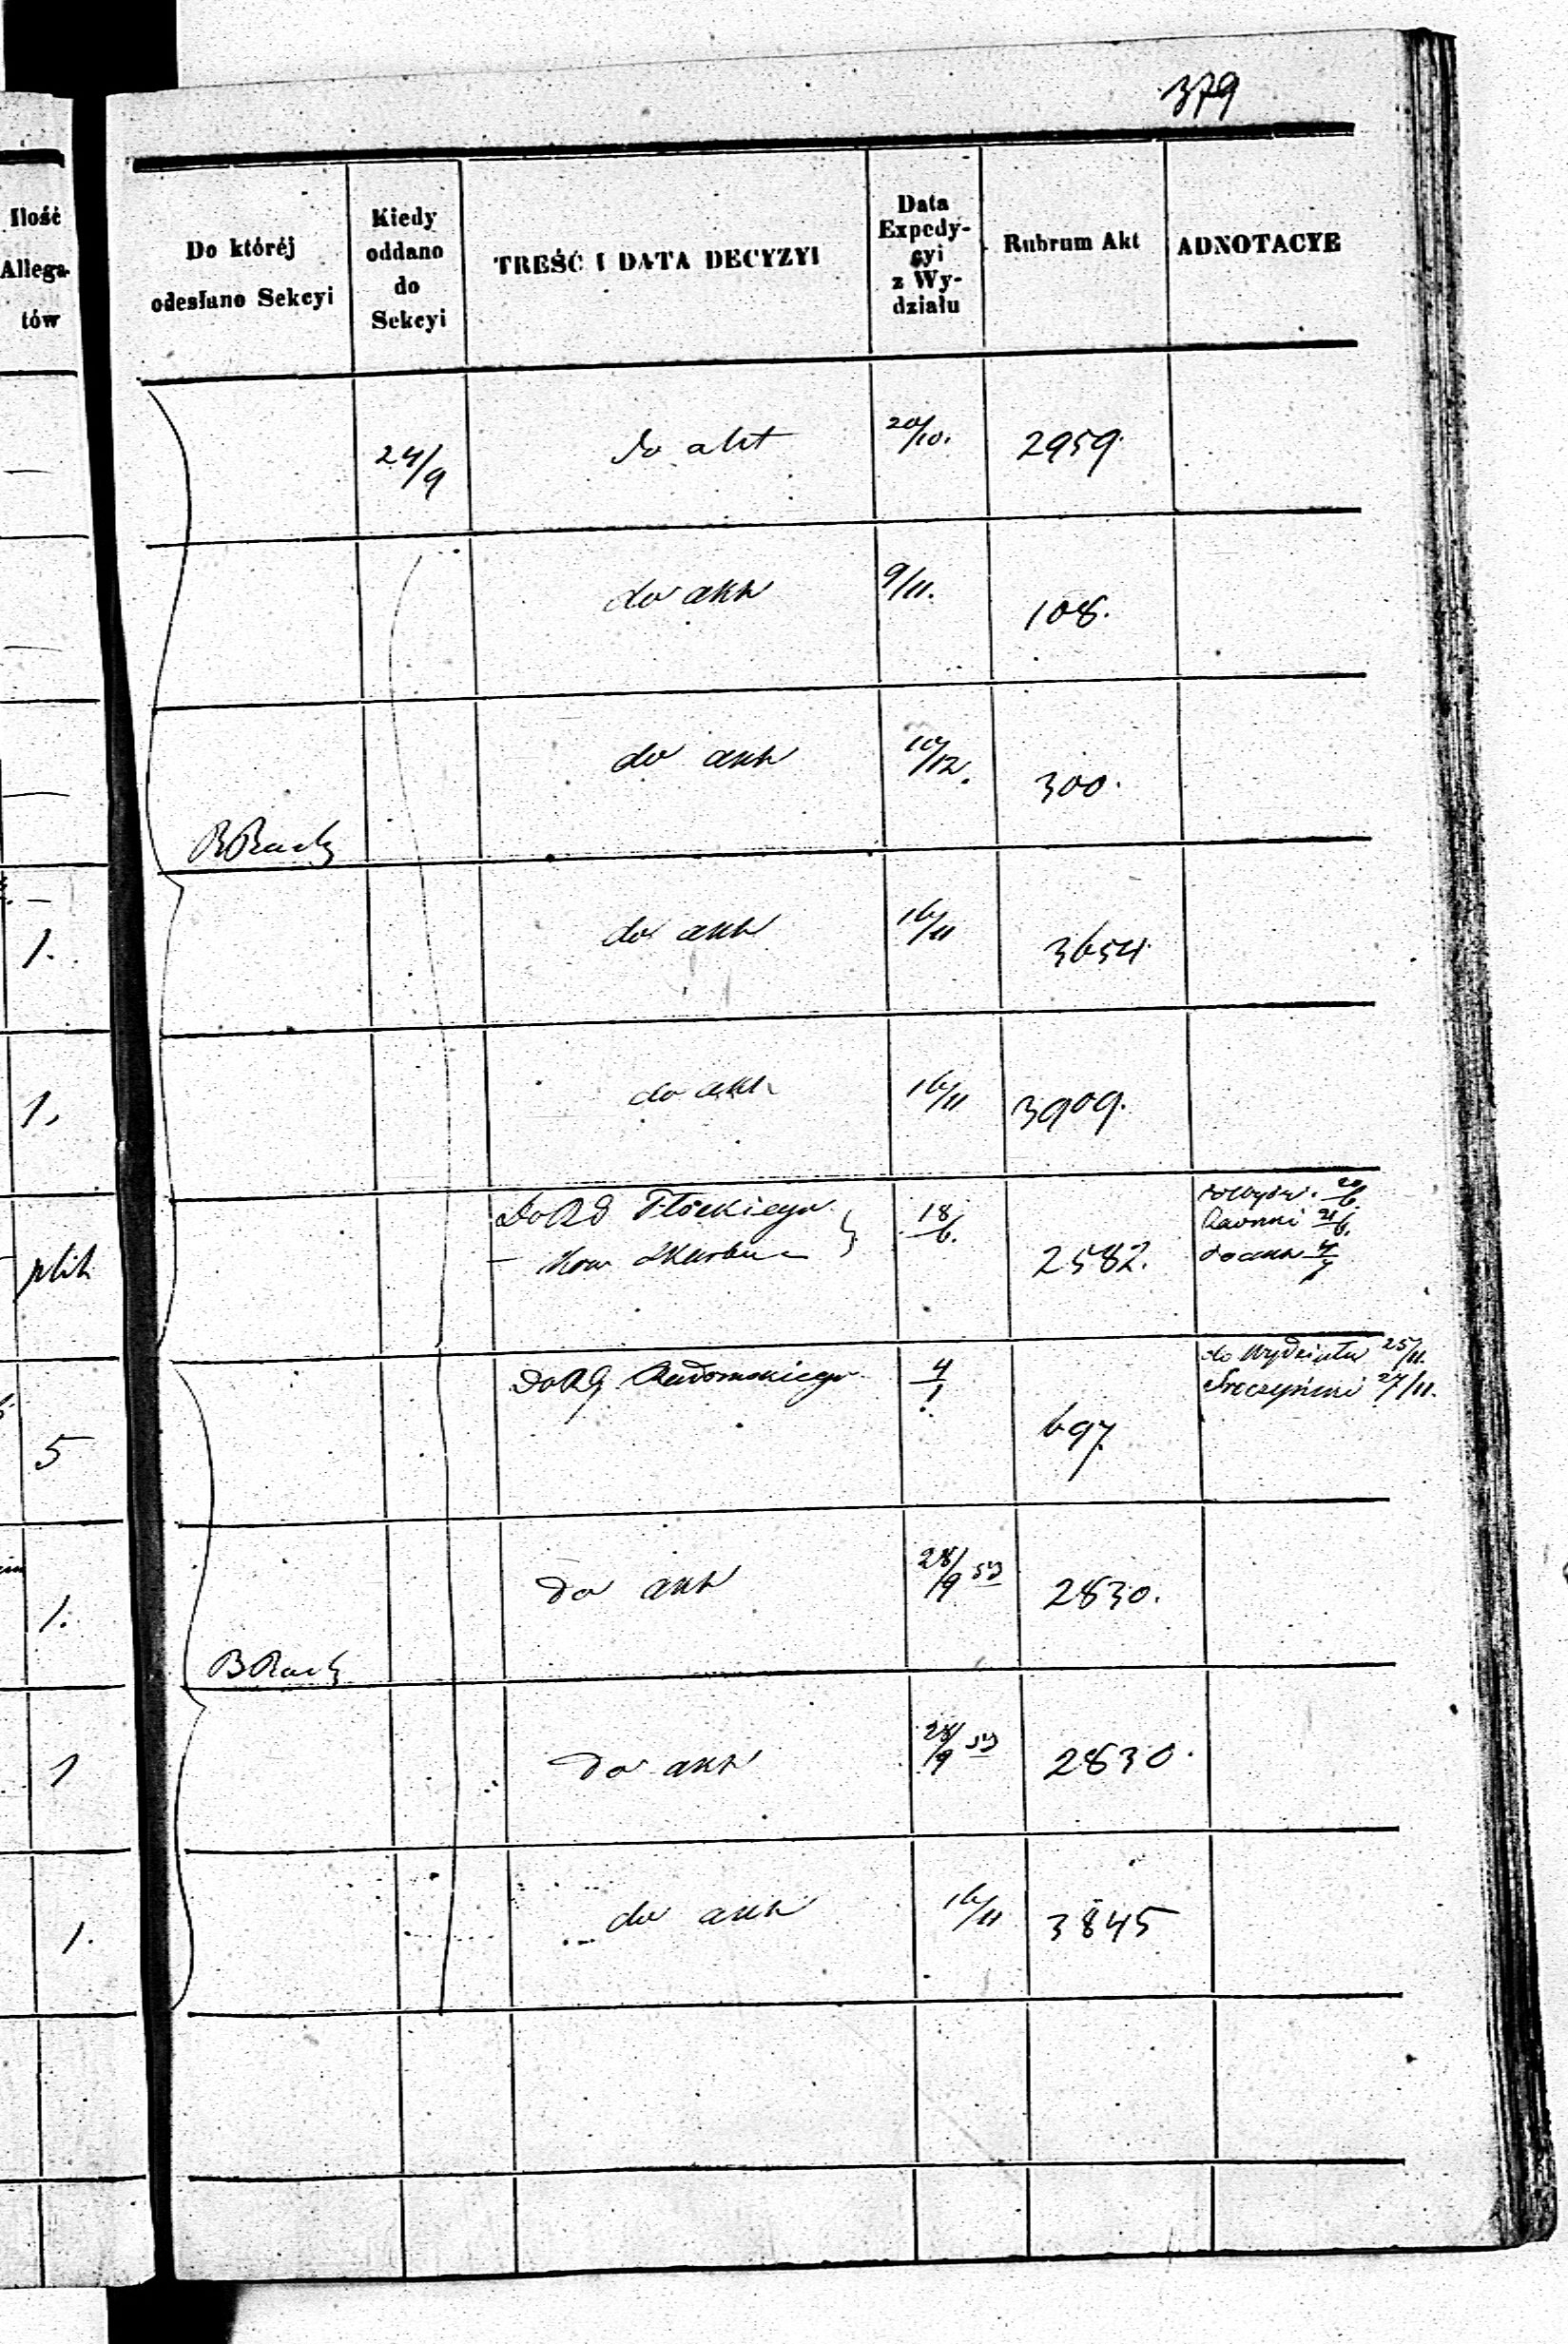 379
Ilość Allega- tów
Do któréj odesłano Sekcyi
Kiedy oddano do Sekcyi
TREŚĆ I DATA DECYZYI
Data Expedy- cyi z Wy- działu
Rubrum Akt
ADNOTACYE
24/9 do akt 20/10. 2959.
do akt 9/11. 108.
do akt 10/12. 300.
1. do akt 16/11 3654
1. do akt 16/11 3909.
plik Do RG Płockiego 18/6. 2582.
Kom Skarbu
20/6
21/6.
do akt 4/7
5 Do RG Radomskiego 4/1 697
do Wydziału 25/11.
27/11.
1. Do akt 28/9 53 2830.
1 Do akt 28/9 53 2830.
1. do akt 16/11 3845